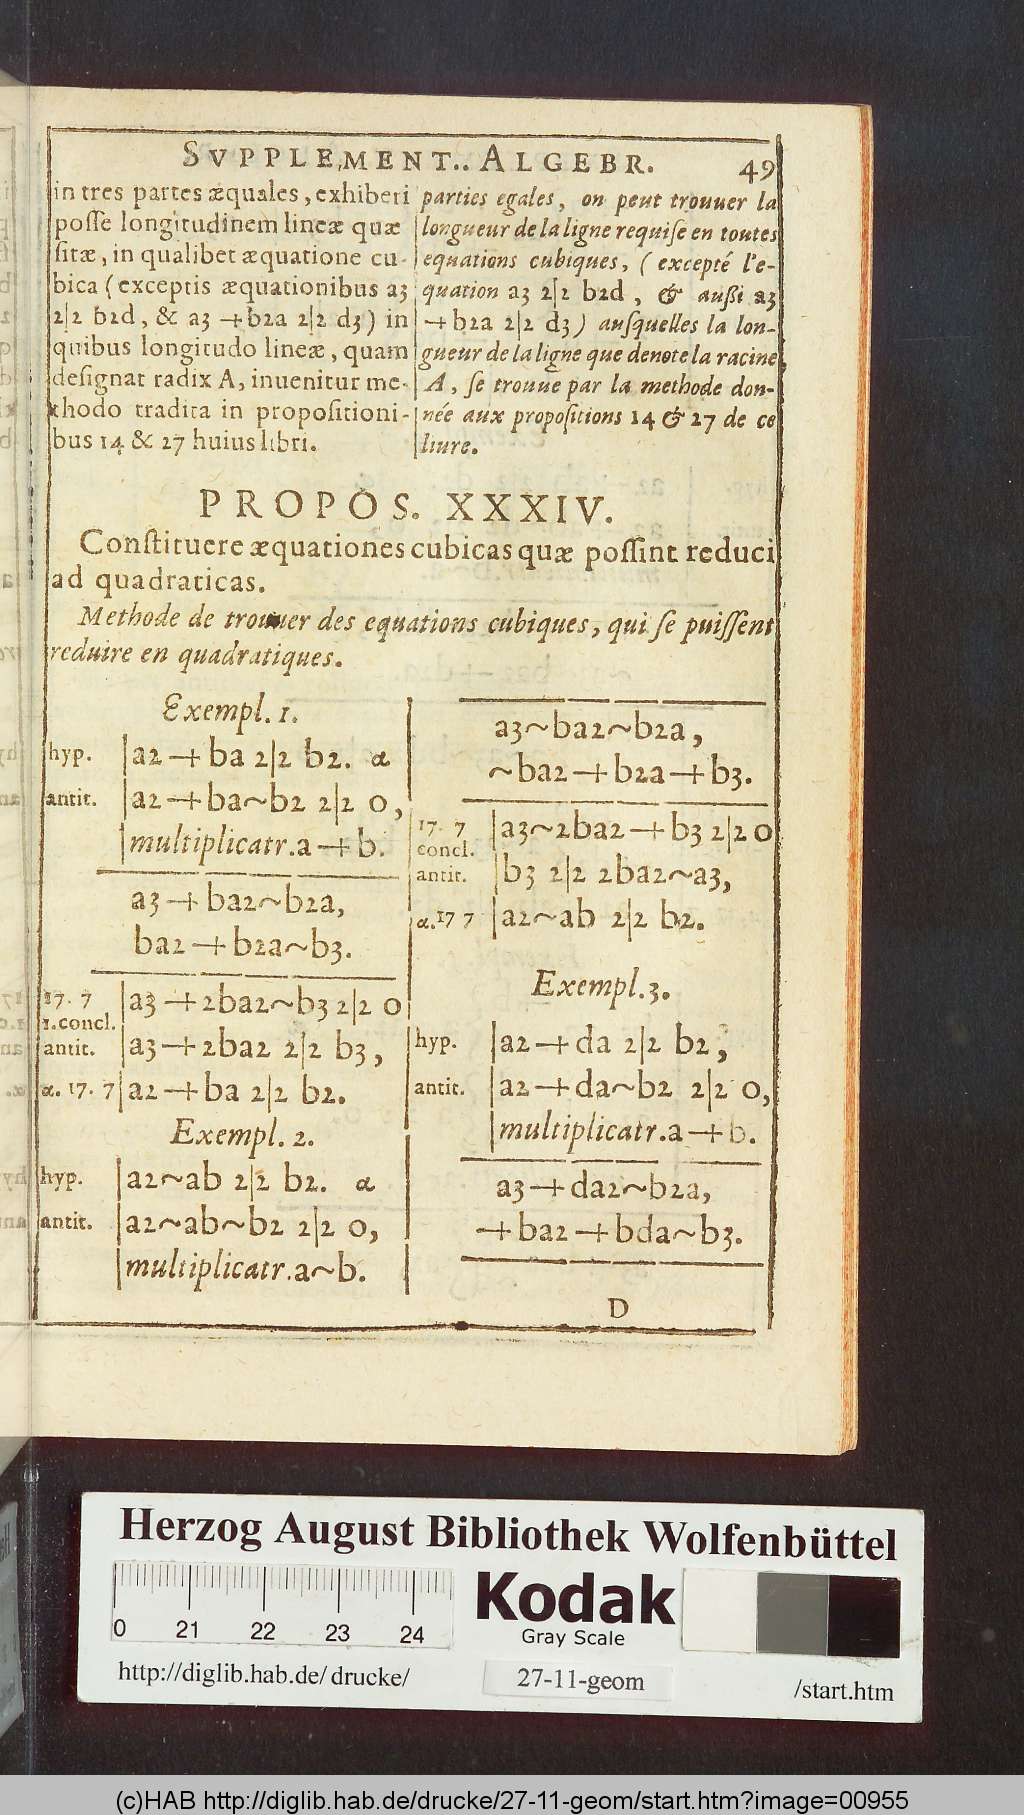 SVPPLEMENT.. ALGEBR. 49
in tres partes æquales, exhiberi
posse longitudinem lineæ quæ
sitæ, in qualibet æquatione cu-
bica (exceptis æquationibus a3
2|2 b2d, & a3 ⊣+ b2a 2|2 d3) in
quibus longitudo lineæ, quam
designat radix A, inuenitur me-
thodo tradita in propositioni-
bus 14 & 27 huius libri.
parties egales, on peut trouuer la
longueur de la ligne requise en toutes
equations cubiques, (excepté l'e-
quation a3 2|2 b2d, & außi a3
⊣+ b2a 2|2 d3) ausquelles la lon-
gueur de la ligne que denote la racine
A, se trouue par la methode don-
née aux propositions 14 & 27 de ce
liure.
PROPOS. XXXIV.
Constituere æquationes cubicas quæ possint reduci
ad quadraticas.
Methode de trouuer des equations cubiques, qui se puissent
reduire en quadratiques.
Exempl. 1.
hyp. |a2 + ba 2|2 b2. α
antit. |a2 + ba ~ b2 2|2 0,
|multiplicatr. a + b.
a3 + ba2 ~ b2a,
ba2 + b2a ~ b3.
17. 7 |a3 + 2ba2 ~ b3 2|2 0
1. concl.
antit. |a3 + 2ba2 2|2 b3,
α. 17. 7 |a2 + ba 2|2 b2.
Exempl. 2.
hyp. |a2 ~ ab 2|2 b2. α
antit. |a2 ~ ab ~ b2 2|2 0,
|multiplicatr. a ~ b.
a3 ~ ba2 ~ b2a,
~ ba2 + b2a + b3.
17. 7 |a3 ~ 2ba2 + b3 2|2 0
concl.
antit. |b3 2|2 2ba2 ~ a3,
α. 17 7 |a2 ~ ab 2|2 b2.
Exempl. 3.
hyp. |a2 + da 2|2 b2,
antit. |a2 + da ~ b2 2|2 0,
|multiplicatr. a + b.
a3 + da2 ~ b2a,
+ ba2 + bda ~ b3.
D
Herzog August Bibliothek Wolfenbüttel
0 21 22 23 24
Kodak
Gray Scale
http://diglib.hab.de/ drucke/
27-11-geom
/start.htm
(c)HAB http://diglib.hab.de/drucke/27-11-geom/start.htm?image=00955